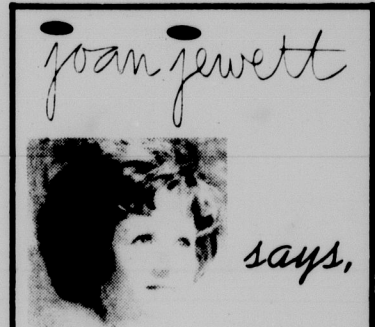 joan jewett
says,